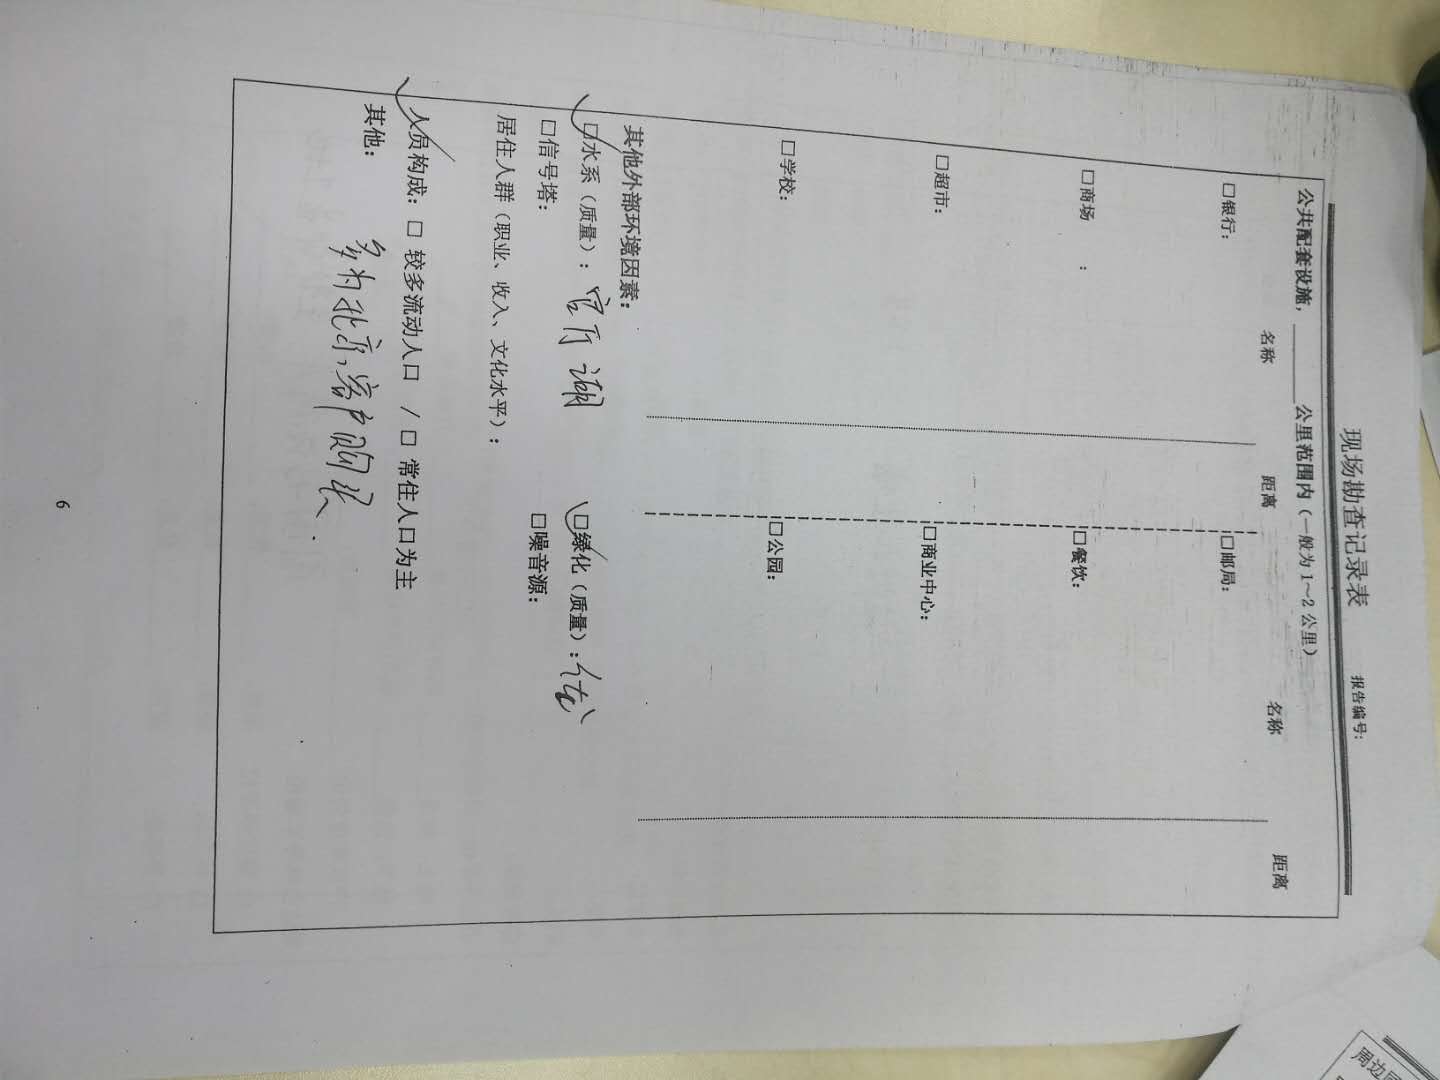 现场勘查记录表
报告编号:
公共配套设施，______公里范围内（一般为1～2公里）
名称 距离 名称 距离
□银行： □邮局：
□商场 ： □餐饮：
□超市： □商业中心：
□学校： □公园：
其他外部环境因素：
□水系（质量）：官厅湖 □绿化（质量）：优
□信号塔： □噪音源：
居住人群（职业、收入、文化水平）：
人员构成：□ 较多流动人口 / □ 常住人口为主
其他：
多为北京客户购买.
6
周边